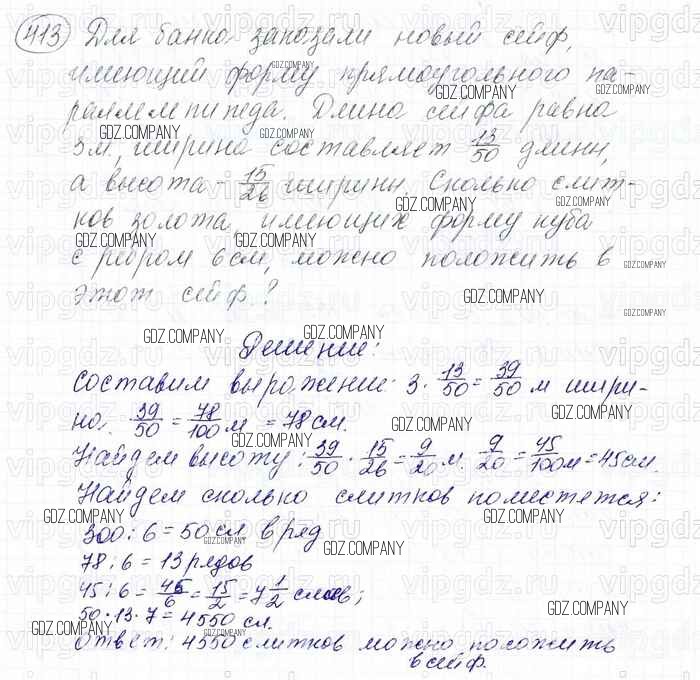 413 Для банка заказали новый сейф,
имеющий форму прямоугольного па-
раллелепипеда. Длина сейфа равна
3м, ширина составляет 13/50 длины,
а высота - 15/26 ширины. Сколько слит-
ков золота, имеющих форму куба
с ребром 6см, можно положить в
этот сейф?
Решение:
Составим выражение: 3 · 13/50 = 39/50 м шири-
на. 39/50 = 78/100 м = 78 см.
Найдем высоту: 39/50 · 15/26 = 9/20 м. 9/20 = 45/100 м = 45 см.
Найдем сколько слитков поместется:
300 : 6 = 50 сл. в ряд
78 : 6 = 13 рядов
45 : 6 = 45/6 = 15/2 = 7 1/2 слоев;
50 · 13 · 7 = 4550 сл.
Ответ: 4550 слитков можно положить
в сейф.
GDZ.COMPANY
vipgdz.ru